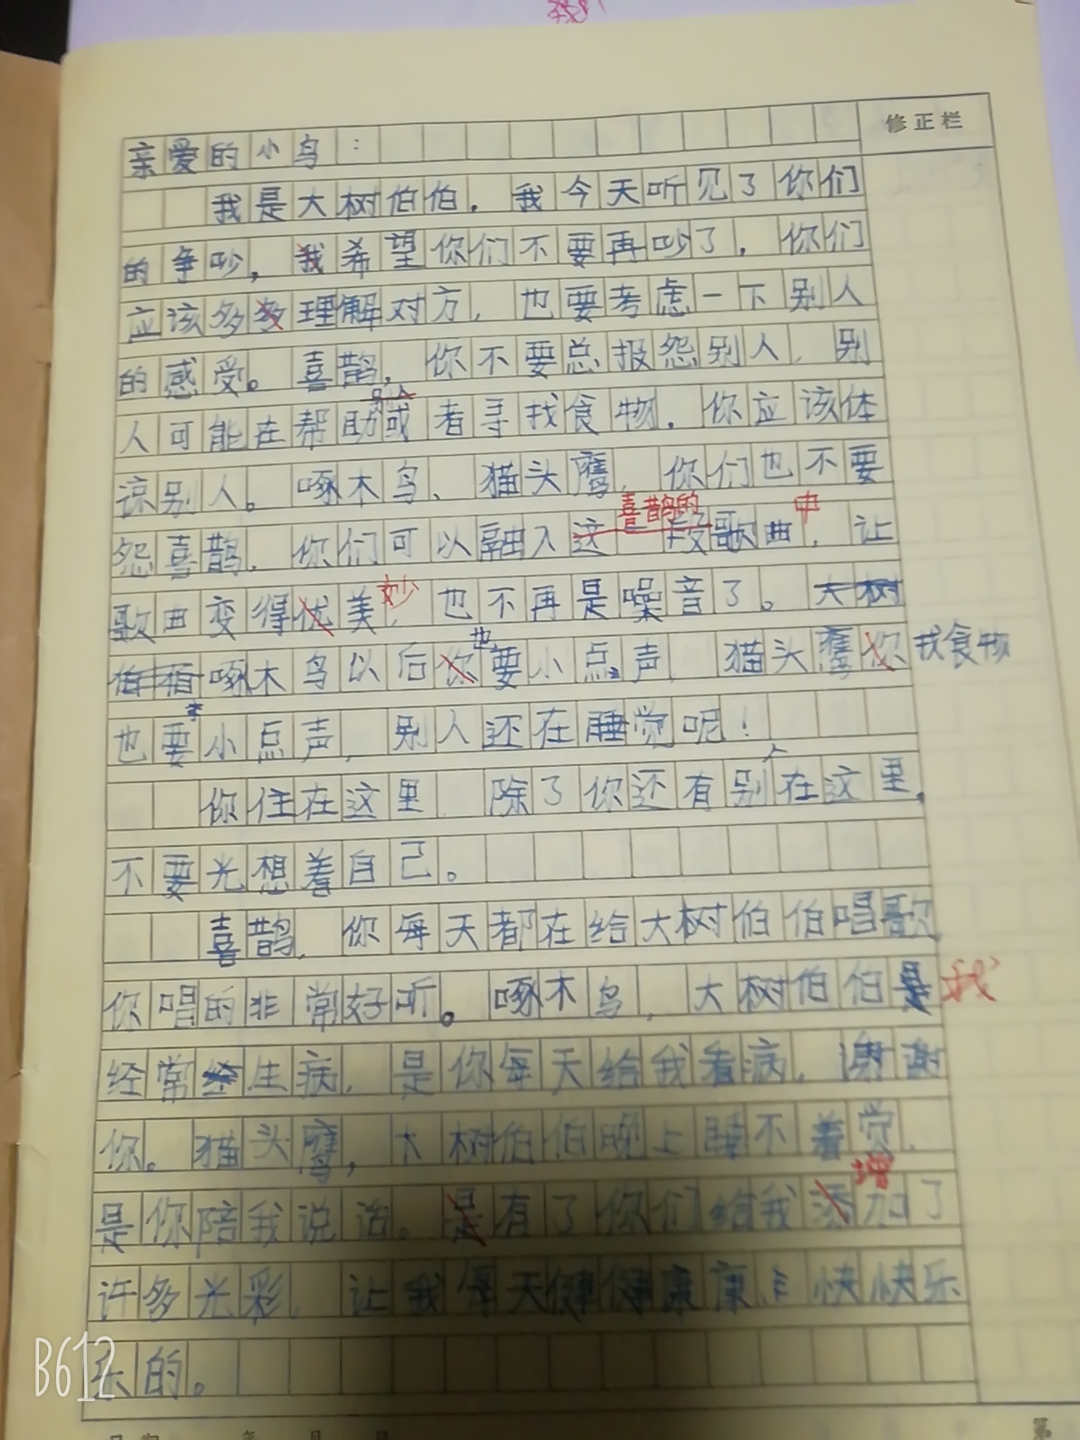 修正栏
亲爱的小鸟：
我是大树伯伯。我今天听见了你们
的争吵，我希望你们不要再吵了，你们
应该多多理解对方，也要考虑一下别人
的感受。喜鹊，你不要总报怨别人，别
别人
人可能在帮助或者寻找食物，你应该体
谅别人。啄木鸟、猫头鹰，你们也不要
喜鹊的 中
怨喜鹊，你们可以融入这一段歌曲，让
歌曲变得优美，妙也不再是噪音了。大树
也
伯伯啄木鸟以后你要小点声，猫头鹰你找食物
也要小点声，别人还在睡觉呢！
人
你住在这里，除了你还有别在这里，
不要光想着自己。
喜鹊，你每天都在给大树伯伯唱歌，
你唱的非常好听。啄木鸟，大树伯伯是我
经常生病，是你每天给我看病，谢谢
你。猫头鹰，大树伯伯晚上睡不着觉，
增
是你陪我说话。是有了你们给我添加了
许多光彩，让我每天健健康康、快快乐
乐的。
B612
年 月 日
第